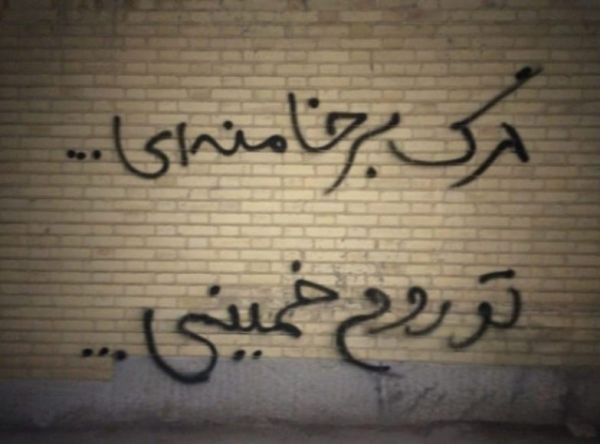 مرگ بر خامنه‌ای...
تو روح خمینی...